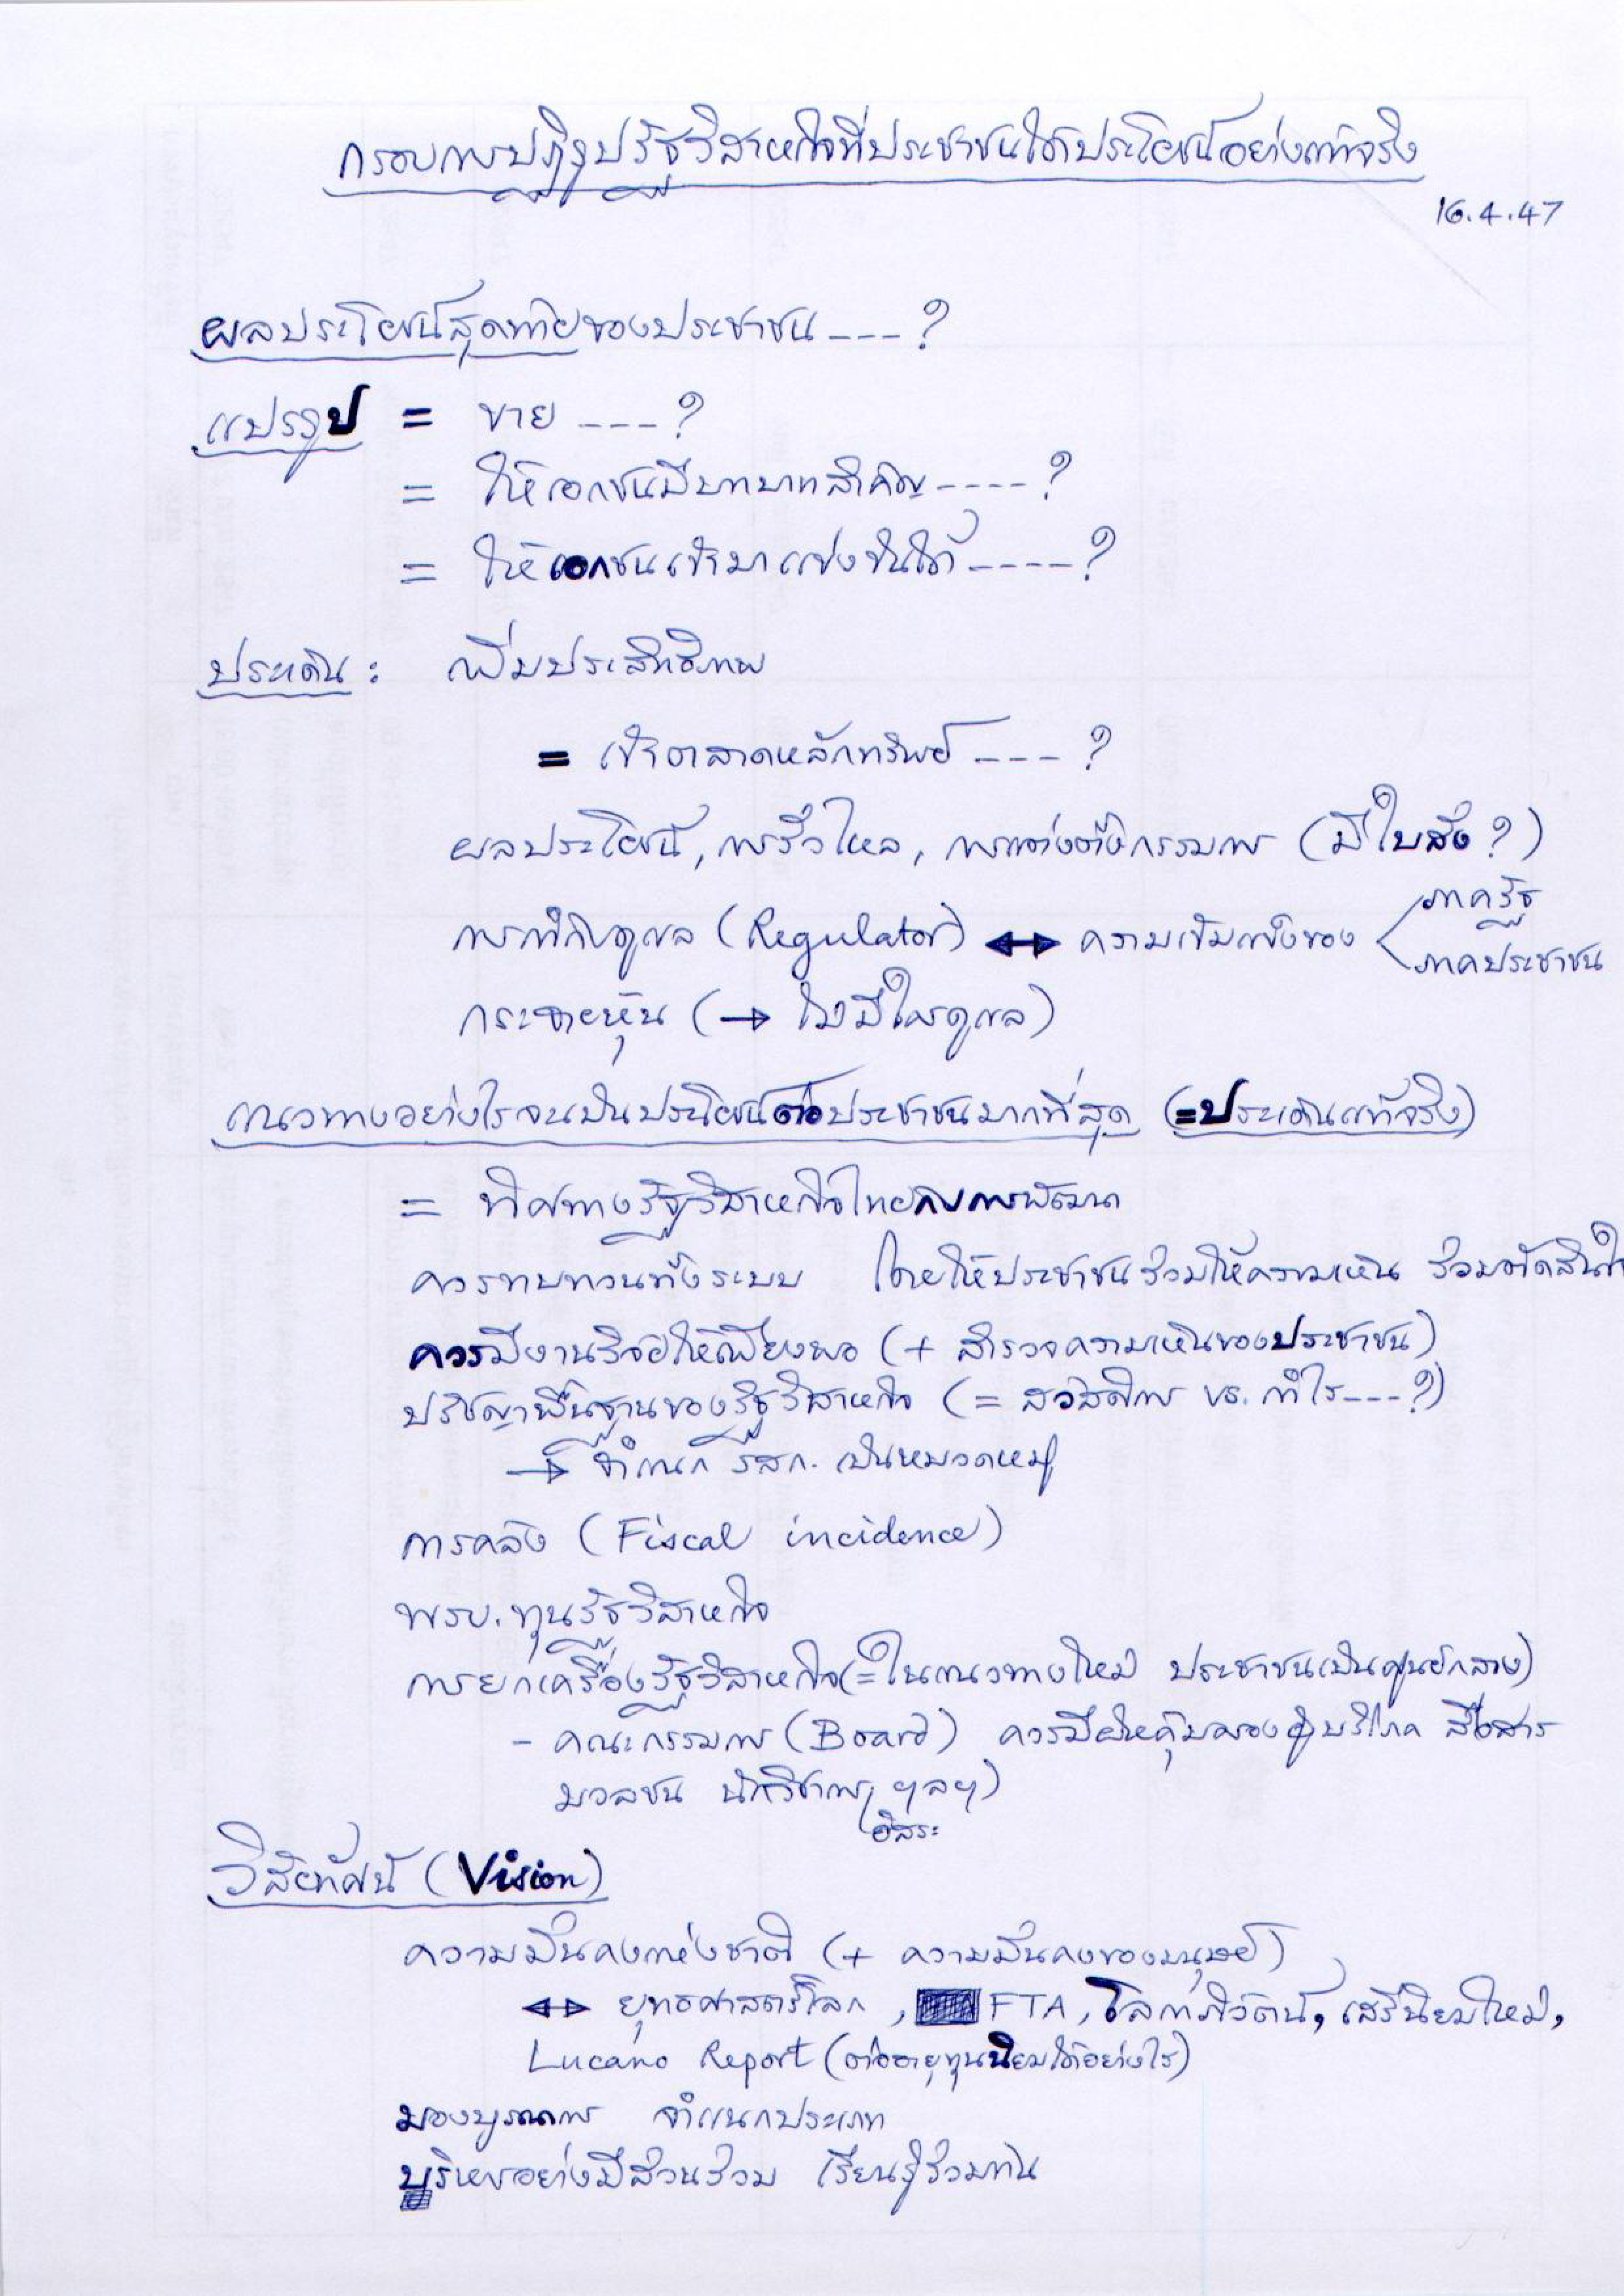 กรอบการปฏิรูปรัฐวิสาหกิจที่ประชาชนได้ประโยชน์อย่างแท้จริง
16.4.47
ผลประโยชน์สุดท้ายของประชาชน ---- ?
แปรรูป = ขาย ---- ?
= ให้เอกชนมีบทบาทสำคัญ ---- ?
= ให้เอกชนเข้ามาแข่งขันได้ ---- ?
ประเด็น : เพิ่มประสิทธิภาพ
= เข้าตลาดหลักทรัพย์ ---- ?
ผลประโยชน์, การรั่วไหล, การแต่งตั้งกรรมการ (มีใบสั่ง ?)
การกำกับดูแล (Regulator) ↔ ความเข้มแข็งของ < ภาครัฐ
ภาคประชาชน
กระจายหุ้น (→ ไม่มีใครดูแล)
แนวทางอย่างไรจะเป็นประโยชน์ต่อประชาชนมากที่สุด (=ประเด็นแท้จริง)
= ทิศทางรัฐวิสาหกิจไทยกับการพัฒนา
ควรทบทวนทั้งระบบ โดยให้ประชาชนร่วมให้ความเห็น ร่วมตัดสินใจ
ควรมีงานวิจัยให้เพียงพอ (+ สำรวจความเห็นของประชาชน)
ปรัชญาพื้นฐานของรัฐวิสาหกิจ (= สวัสดิการ vs. กำไร ---- ?)
→ จำแนก รสก. เป็นหมวดหมู่
การคลัง (Fiscal incidence)
พรบ. ทุนรัฐวิสาหกิจ
การยกเครื่องรัฐวิสาหกิจ (= ในแนวทางใหม่ ประชาชนเป็นศูนย์กลาง)
- คณะกรรมการ (Board) ควรมีฝ่ายคุ้มครองผู้บริโภค สื่อสาร
มวลชน นักวิชาการ ฯลฯ)
อิสระ
วิสัยทัศน์ (Vision)
ความมั่นคงแห่งชาติ (+ ความมั่นคงของมนุษย์)
↔ ยุทธศาสตร์โลก, FTA, โลกาภิวัตน์, เสรีนิยมใหม่,
Lucano Report (ต่ออายุทุนนิยมได้อย่างไร)
มองบูรณาการ จำแนกประเภท
บริหารอย่างมีส่วนร่วม เรียนรู้ร่วมกัน